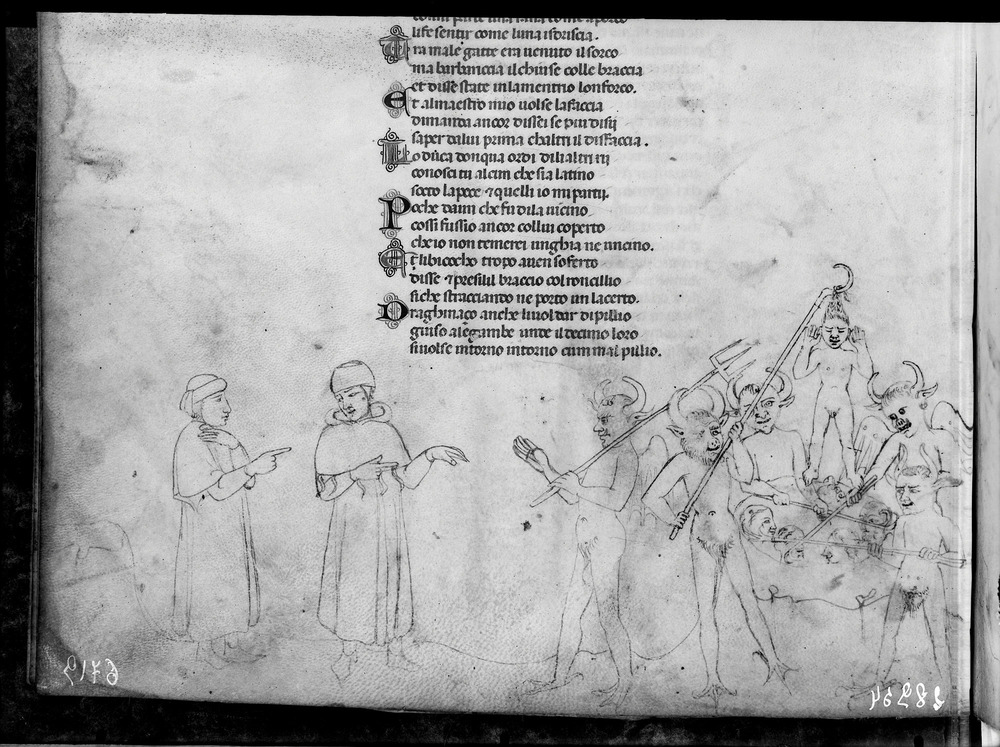 parte una sana come aporco
li fe sentir come luna isdriscia.
Tra male gatte era uenuto il sorco
ma barbariccia il chiuse colle braccia
et disse state inla mentrio lonforco.
Et al maestro mio uolse la faccia
dimanda ancor disse se piu disii
saper da lui prima chaltri il disfaccia.
Lo duca donqua or di dili altri rii
conosci tu alcun che sia latino
socto la pece ⁊ quelli io mi partii.
Poche da un che fu di la uicino
cossi fussio ancor collui coperto
che io non temerei unghia ne uncino.
Et libicocho tropo auen soferto
disse ⁊ presili il braccio col roncillio
siche stracciando ne porto un lacerto.
Draghinaço anche li uol dar di pillio
giuso ale gambe unde il decurio loro
si uolse intorno intorno cum mal pillio.